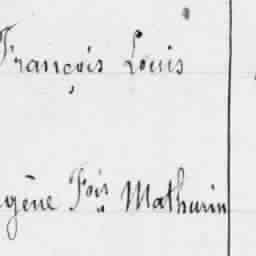 François Louis
gène Fois Mathurin